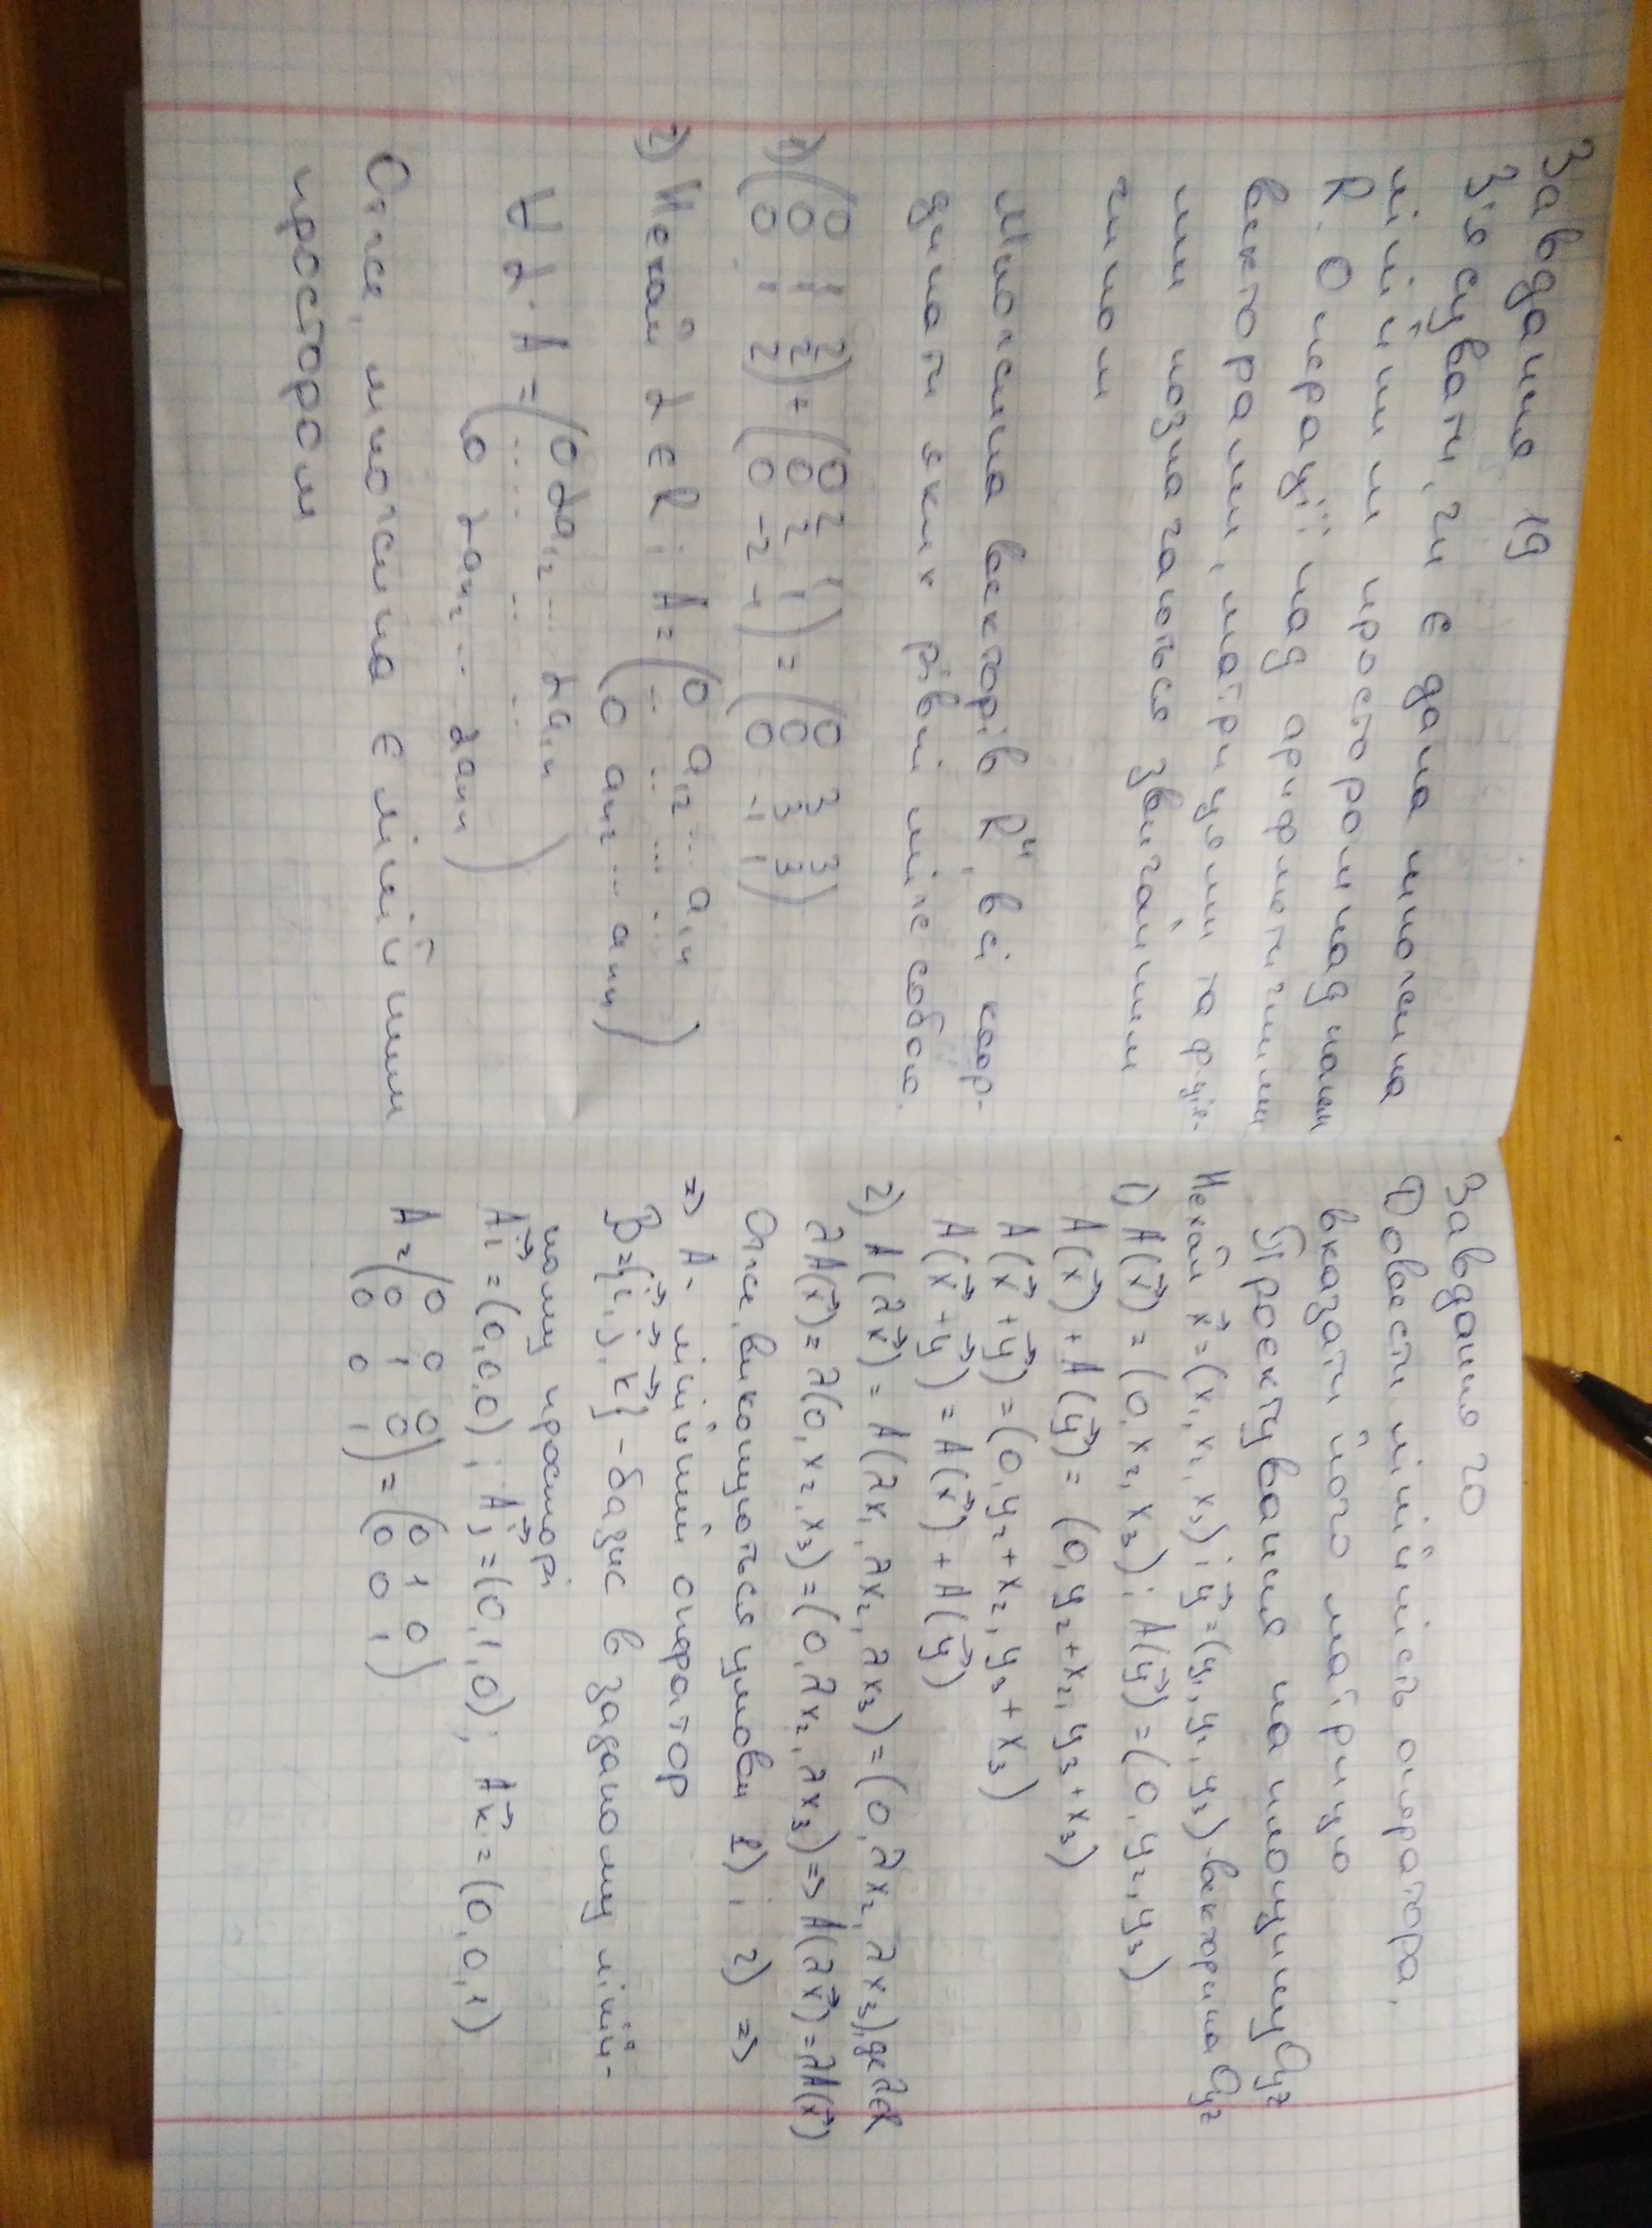 Завдання 19
З'ясувати, чи є дана множина
лінійним простором над полем
R. Операції над арифметичними
векторами, матрицями та функ-
ями позначаються звичайним
чином
Множина векторів R⁴, всі коор-
динати яких рівні між собою.
1) (0 1 2; 0 1 2; 0 1 2) + (0 2 1; 0 2 1; 0 -2 -1) = (0 3 3; 0 3 3; 0 -1 1)
2) Нехай α ∈ R; A = (0 a₁₂ ... a₁ₙ
... ... ... ...
0 aₙ₂ ... aₙₙ)
∀ α · A = (0 αa₁₂ ... αa₁ₙ
... ... ...
0 αaₙ₂ ... αaₙₙ)
Отже, множина є лінійним
простором
Завдання 20
Довести лінійність оператора,
вказати його матрицю
Проектування на площину Oyz
Нехай x⃗ = (x₁, x₂, x₃); y⃗ = (y₁, y₂, y₃) - вектори на Oyz
1) A(x⃗) = (0, x₂, x₃); A(y⃗) = (0, y₂, y₃)
A(x⃗) + A(y⃗) = (0, y₂ + x₂, y₃ + x₃)
A(x⃗ + y⃗) = (0, y₂ + x₂, y₃ + x₃)
A(x⃗ + y⃗) = A(x⃗) + A(y⃗)
2) A(λx⃗) = A(λx₁, λx₂, λx₃) = (0, λx₂, λx₃), де
λA(x⃗) = λ(0, x₂, x₃) = (0, λx₂, λx₃) => A(λx⃗) = λA(x⃗)
Отже, виконуються умови 1) і 2) =>
=> A - лінійний оператор
B = {i⃗, j⃗, k⃗} - базис в заданому ліній-
ному просторі
Ai⃗ = (0,0,0); Aj⃗ = (0,1,0); Ak⃗ = (0,0,1)
A = (0 0 0; 0 1 0; 0 0 1) = (0 1 0; 0 0 1)